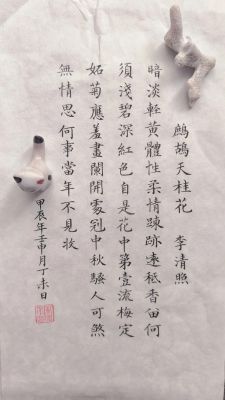 鷓鴣天桂花　李清照
暗淡輕黃體性柔情踈跡遠秪香畱何
須淺碧深紅色自是花中第壹流梅定
妬菊應羞畫闌開處冠中秋騷人可煞
無情思何事當年不見收
甲辰年壬申月丁未日